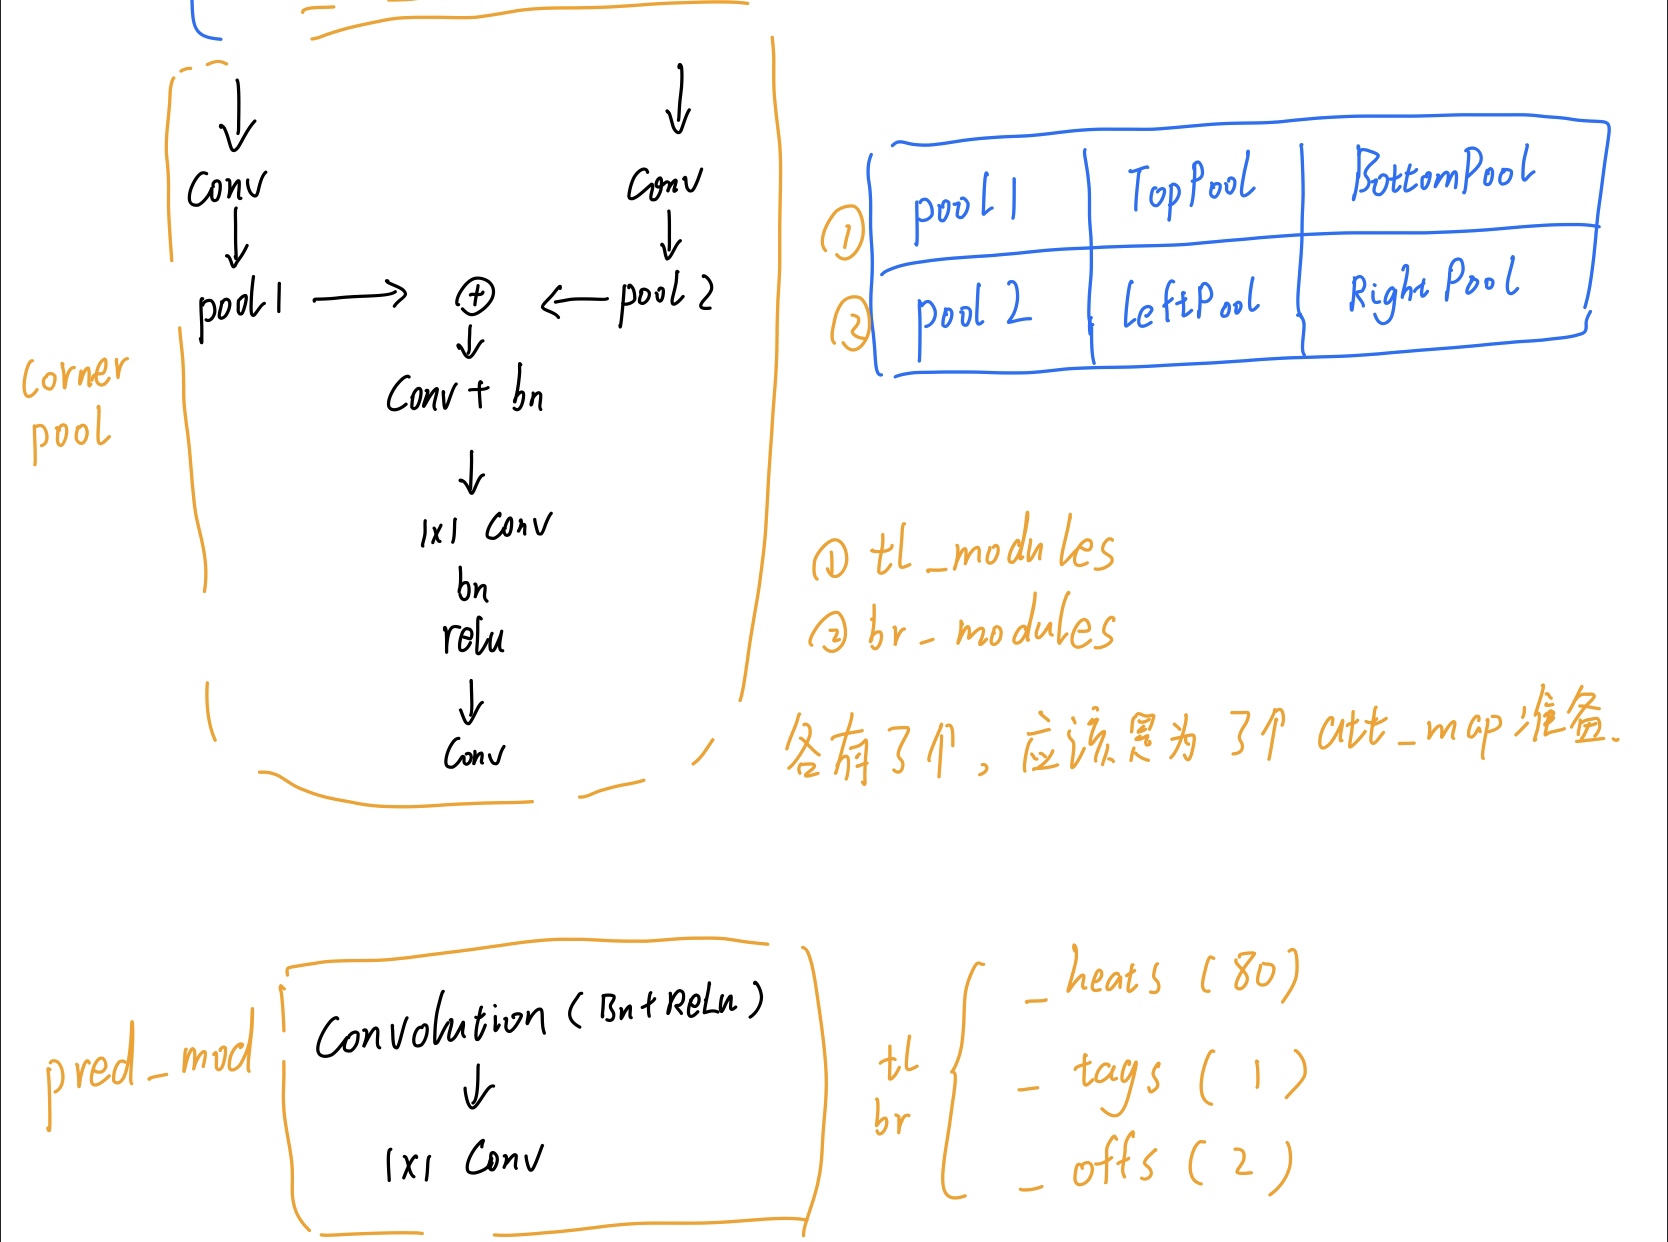 Conv Conv
pool1 → ⊕ ← pool2
Corner
pool
Conv + bn
1x1 Conv
bn
relu
Conv
① pool1 TopPool BottomPool
② pool2 LeftPool RightPool
① tl_modules
② br_modules
各有3个, 应该是为3个 att_map准备.
pred_mod
Convolution (Bn+ReLu)
1x1 Conv
tl
br
_heats (80)
_tags (1)
_offs (2)